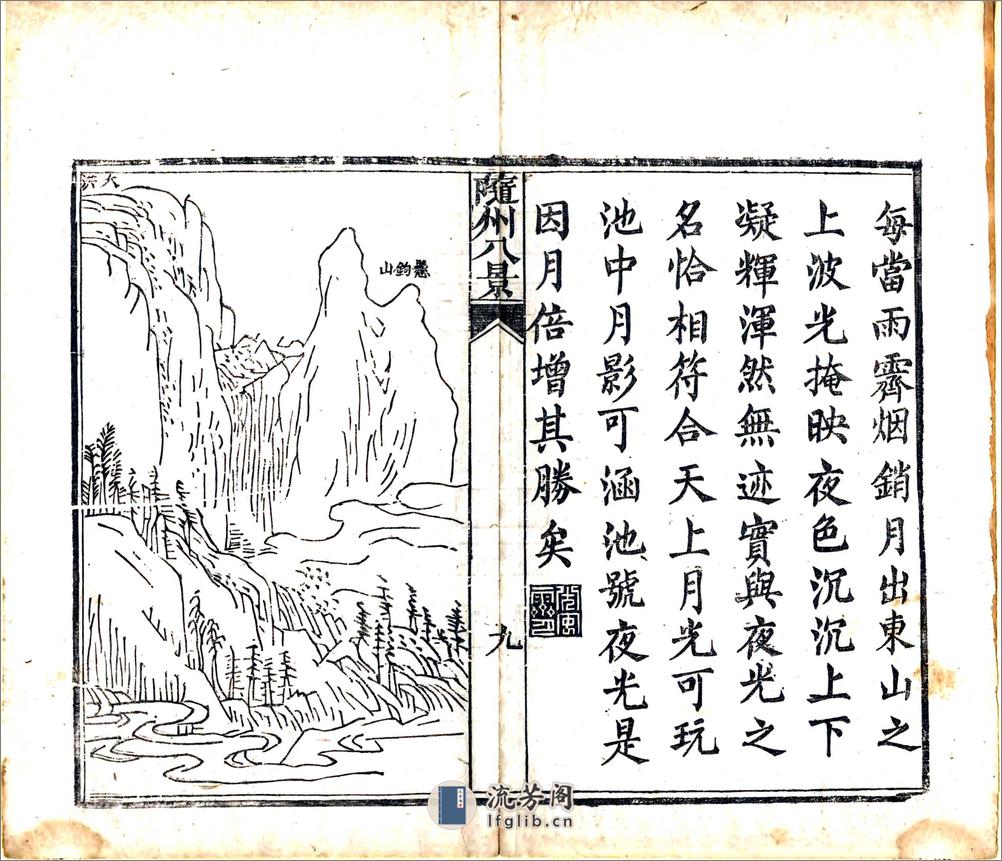 每當雨霽烟銷月出東山之
上波光掩映夜色沉沉上下
凝輝渾然無迹實與夜光之
名恰相符合天上月光可玩
池中月影可涵池號夜光是
因月倍增其勝矣
隨州八景
九
懸鉤山
大洪
流芳阁
lfglib.cn